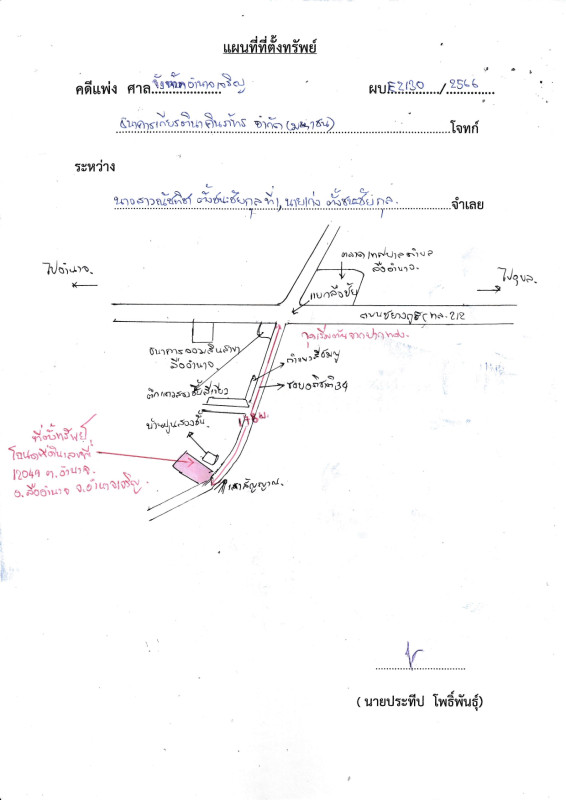 แผนที่ที่ตั้งทรัพย์
คดีแพ่ง ศาลจังหวัดอำนาจเจริญ ผบE2130/2566
ธนาคารเกียรตินาคินภัทร จำกัด (มหาชน) โจทก์
ระหว่าง
นางสาวณัชทิชา ตั้งชนะชัยกุล ที่1, นายเก่ง ตั้งชนะชัยกุล จำเลย
ตลาดเทศบาลตำบล
ลืออำนาจ
ไปอำนาจ
ไปอุบล
แยกลือชัย
ถนนชยางกูร ทล.212
จุดเริ่มต้นจากปากทาง
ธนาคารออมสินสาขา
ลืออำนาจ
กำแพงสีชมพู
ซอย 34
ตึกแถวสองชั้นสีเขียว
บ้านปูนสองชั้น
ที่ตั้งทรัพย์
โฉนดที่ดินเลขที่
12049 ต.อำนาจ
อ.ลืออำนาจ จ.อำนาจเจริญ
เสาสัญญาณ
(นายประทีป โพธิ์พันธุ์)